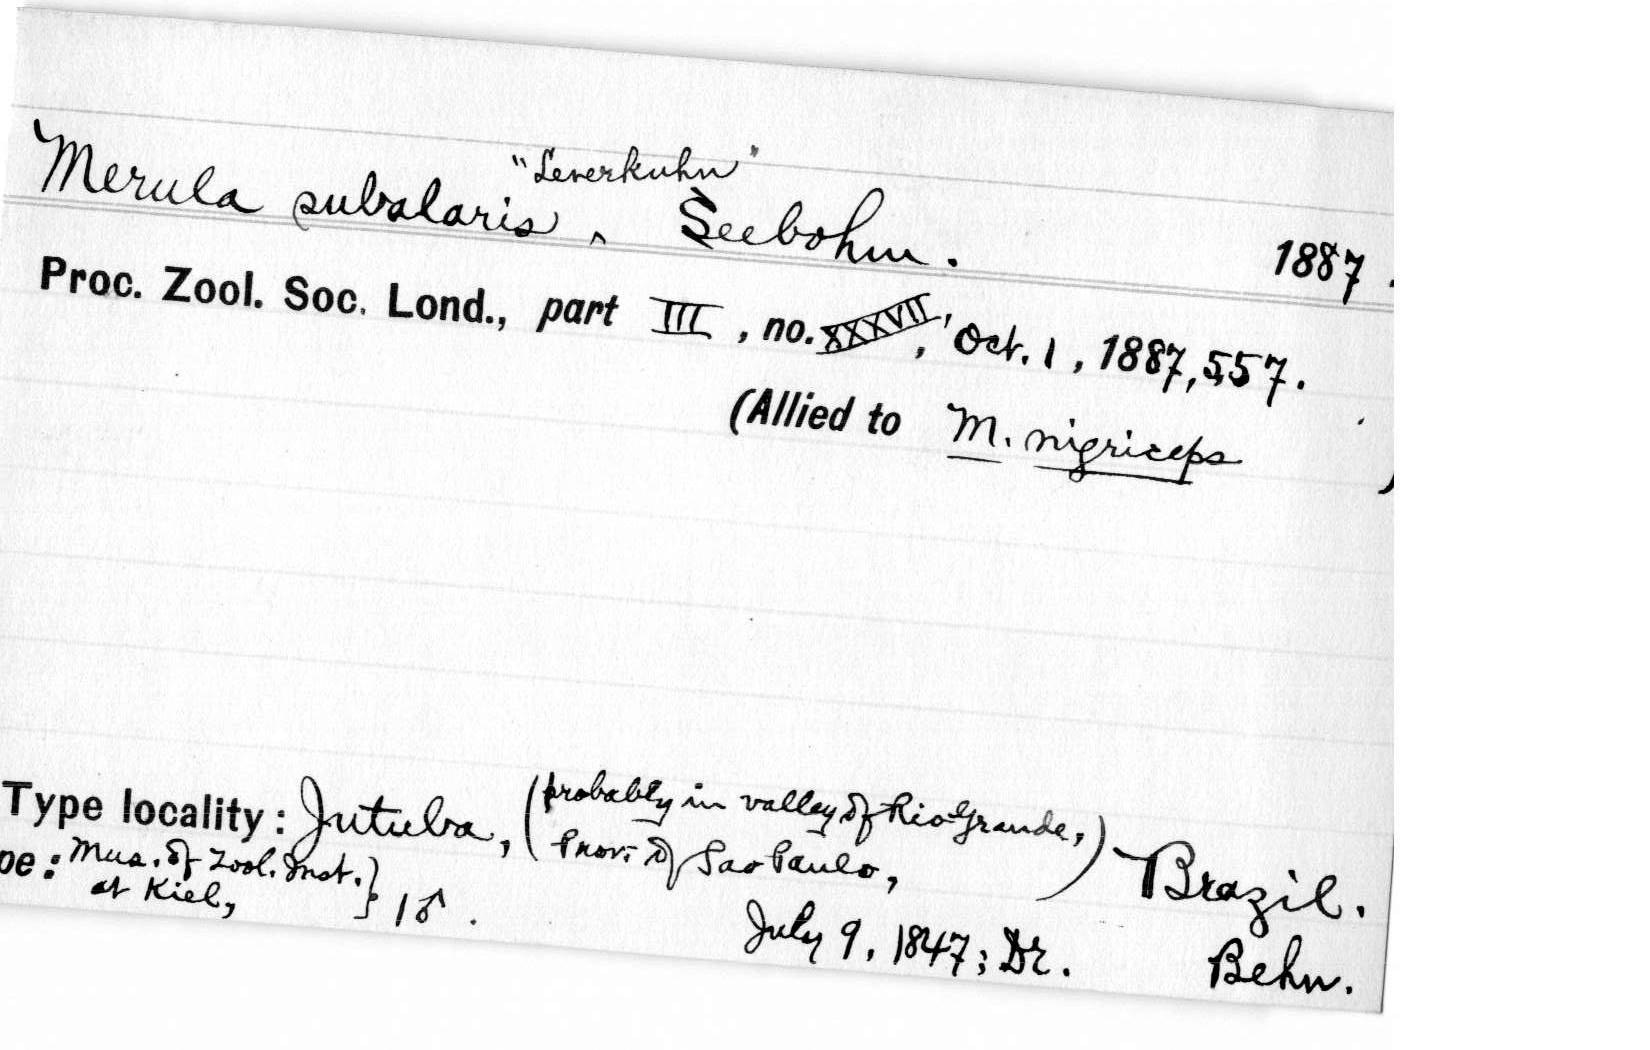 "Leverkuhn"
Merula subalaris ‸ Seebohm. 1887.
Proc. Zool. Soc. Lond., part III, no. XXXVII, Oct. 1, 1887, 557.
(Allied to M. nigriceps )
Type locality: Jutuba, (probably in valley of Rio Grande,
Prov. of Sao Paulo, ) Brazil.
pe: Mus. of Zool. Inst.
at Kiel, } 1♂. July 9, 1847; Dr. Behn.